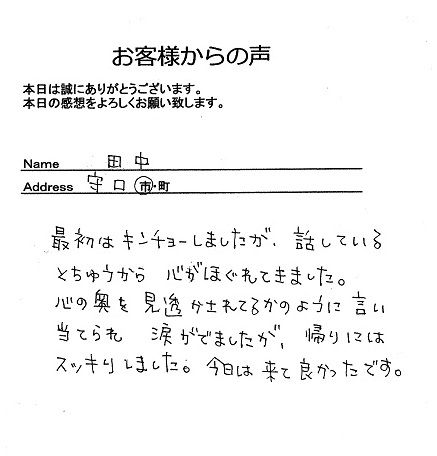 お客様からの声
本日は誠にありがとうございます。
本日の感想をよろしくお願い致します。
Name 田中
Address 守口 市・町
最初はキンチョーしましたが、話している
とちゅうから 心がほぐれてきました。
心の奥を見透かされてるかのように言い
当てられ 涙がでましたが、帰りには
スッキリしました。今日は来て良かったです。